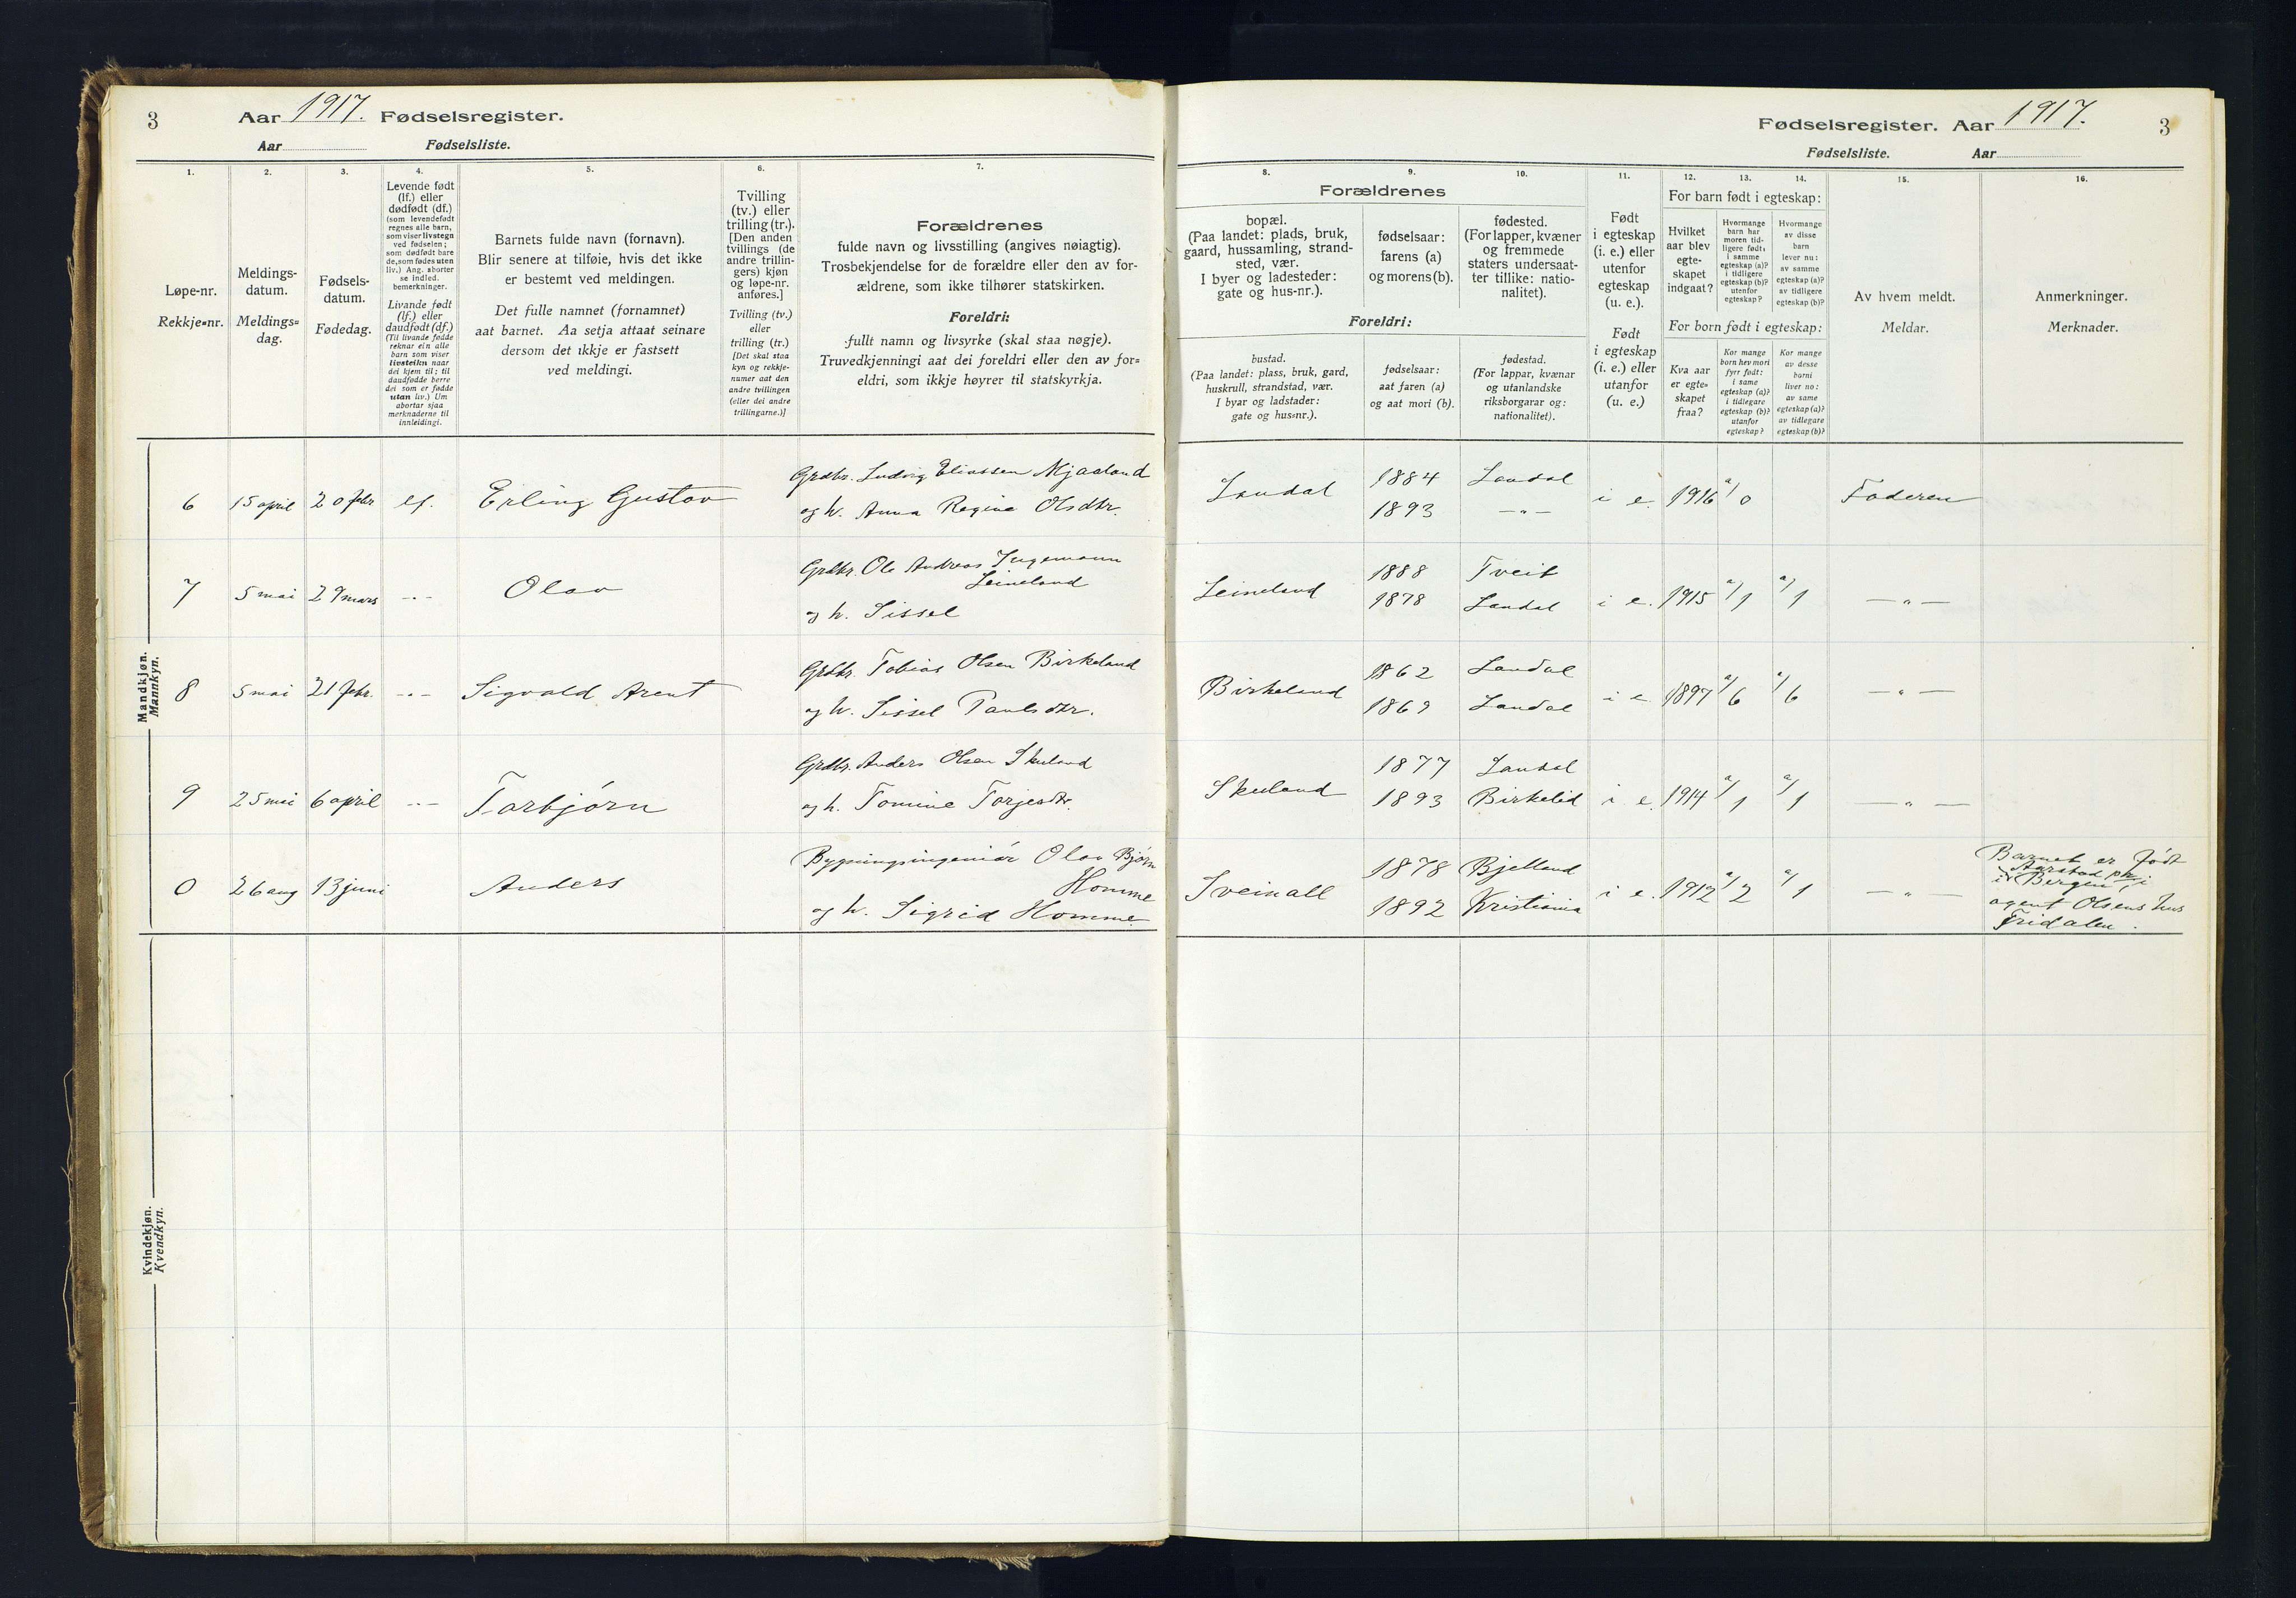 3 Aar 1917. Fødselsregister.
Aar Fødselsliste.
1. 2. 3. 4. 5. 6. 7.
Løpe-nr.
Rekkje-nr.
Meldings-
datum.
Meldings-
dag.
Fødsels-
datum.
Fødedag.
Levende født
(lf.) eller
dødfødt (df.)
(som levendefødt
regnes alle barn,
som viser livstegn
ved fødselen;
som dødfødt bare
de, som fødes uten
liv.) Ang. aborter
se indled.
bemerkninger.
Livande født
(lf.) eller
daudfødt (df.)
(Til livande fødde
reknar ein alle
barn som viser
livsteikn naar
dei kjem til; til
daudfødde berre
dei som er fødde
utan liv.) Um
abortar sjaa
merknaderne til
innleidingi.
Barnets fulde navn (fornavn).
Blir senere at tilføie, hvis det ikke
er bestemt ved meldingen.
Det fulle namnet (fornamnet)
aat barnet. Aa setja attaat seinare
dersom det ikkje er fastsett
ved meldingi.
Tvilling
(tv.) eller
trilling (tr.).
[Den anden
tvillings (de
andre trillin-
gers) kjøn
og løpe-nr.
anføres.]
Tvilling (tv.)
eller
trilling (tr.)
[Det skal staa
kyn og rekkje-
numer aat den
andre tvillingen
(eller dei andre
trillingarne.)]
Forældrenes
fulde navn og livsstilling (angives nøiagtig).
Trosbekjendelse for de forældre eller den av for-
ældrene, som ikke tilhører statskirken.
Foreldri:
fullt namn og livsyrke (skal staa nøgje).
Truvedkjenningi aat dei foreldri eller den av for-
eldri, som ikkje høyrer til statskyrkja.
Mandkjøn.
Mannkyn.
6 15 april 20 febr lf. Erling Gustav Grdbr. Ludvig Eliassen Mjaaland
og h. Anna Regine Olsdtr.
7 5 mai 29 mars -"- Olav Grdbr. Ole Andreas Ingemann
Leineland
og h. Sissel
8 5 mai 21 febr. -"- Sigvald Arent Grdbr. Tobias Olsen Birkeland
og h. Sissel Paulsdtr.
9 25 mai 6 april -"- Torbjørn Grdbr. Anders Olsen Skuland
og h. Tomine Torjesdtr.
0 26 aug 13 juni Anders Bygningsingeniør Olav Bjørn
Homme
og h. Sigrid Homme
Kvindekjøn.
Kvendkyn.
Fødselsregister. Aar 1917. 3
Fødselsliste. Aar
8. 9. 10. 11. 12. 13. 14. 15. 16.
Forældrenes
bopæl.
(Paa landet: plads, bruk,
gaard, hussamling, strand-
sted, vær.
I byer og ladesteder:
gate og hus-nr.).
fødselsaar:
farens (a)
og morens (b).
fødested.
(For lapper, kvæner
og fremmede
staters undersaat-
ter tillike: natio-
nalitet).
Foreldri:
bustad.
(Paa landet: plass, bruk, gard,
huskrull, strandstad, vær.
I byar og ladstader:
gate og hus-nr.).
fødselsaar:
aat faren (a)
og aat mori (b).
fødestad.
(For lappar, kvænar
og utanlandske
riksborgarar og:
nationalitet).
Født
i egteskap
(i. e.) eller
utenfor
egteskap
(u. e.).
Født
i egteskap
(i. e.) eller
utanfor
(u. e.)
For barn født i egteskap:
Hvilket
aar blev
egte-
skapet
indgaat?
Hvormange
barn har
moren tid-
ligere født:
i samme
egteskap (a)?
i tidligere
egteskap (b)?
utenfor
egteskap?
Hvormange
av disse
barn
lever nu:
av samme
egteskap (a)?
av tidligere
egteskap (b)?
For born født i egteskap:
Kva aar
er egte-
skapet
fraa?
Kor mange
born hev mori
fyrr født:
i same
egteskap (a)?
i tidlegare
egteskap (b)?
utanfor
egteskap?
Kor mange
av desse
borni
liver no:
av same
egteskap (a)?
av tidlegare
egteskap (b)?
Av hvem meldt.
Meldar.
Anmerkninger.
Merknader.
Laudal 1884 Laudal i e. 1916 a/0 Faderen
1893 -"-
Leineland 1888 Tveit i e. 1915 a/1 a/1 -"-
1878 Laudal
Birkeland 1862 Laudal i e 1897 a/6 a/6 -"-
1869 Laudal
Skuland 1877 Laudal i e. 1914 a/1 a/1 -"-
1893 Birkelid
Sveinall 1878 Bjelland i e. 1912 a/2 a/1 -"-
1892 Kristiania
Barnet er født
Aarstad
i Bergen, i
agent Olsens hus
Fridalen.